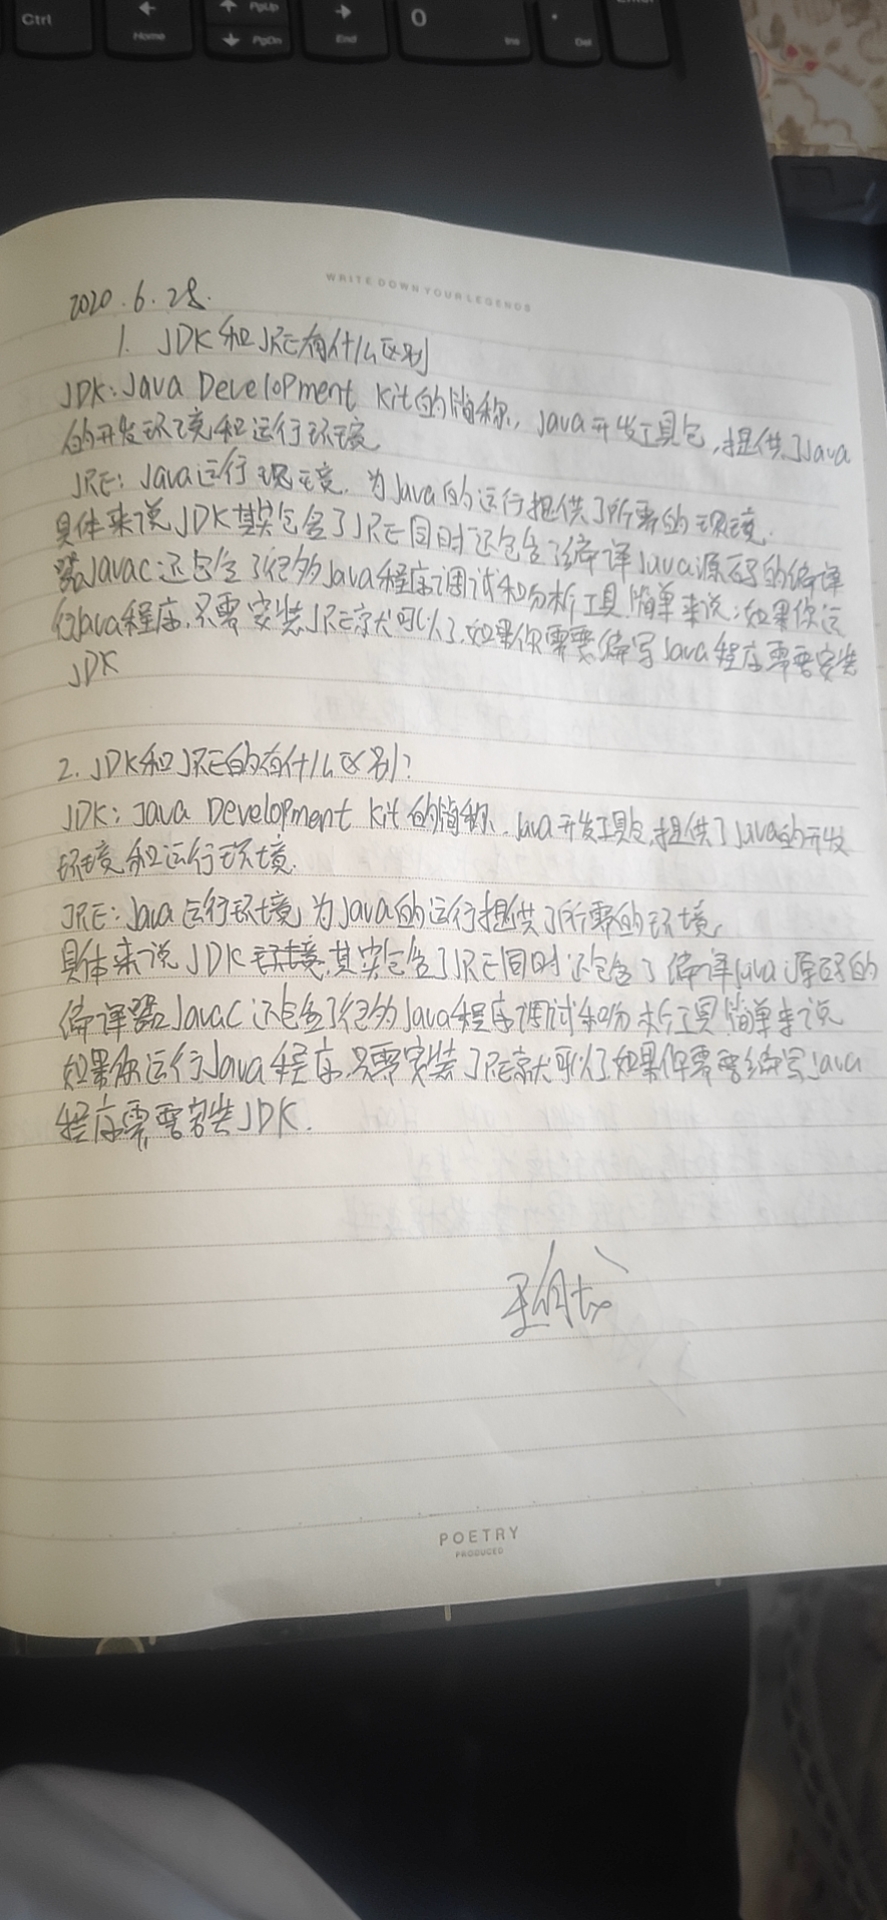 Ctrl
Home
PgUp
PgDn
End
0
Ins
.
Del
WRITE DOWN YOUR LEGENDS
2020.6.28.
1. JDK和JRE有什么区别
JDK:Java Development Kit的简称,Java开发工具包,提供了Java
的开发环境和运行环境
JRE:Java运行环境,为Java的运行提供了所需的环境.
具体来说JDK其实包含了JRE同时还包含了编译Java源码的编译
器Javac还包含了很多Java程序调试和分析工具简单来说:如果你运
行Java程序,只需安装JRE就可以了,如果你需要编写Java程序需要安装
JDK
2. JDK和JRE的有什么区别?
JDK:Java Development Kit的简称,Java开发工具包,提供了Java的开发
环境和运行环境.
JRE:Java运行环境,为Java的运行提供了所需的环境,
具体来说JDK环境其实包含了JRE同时还包含了编译Java源码的
编译器Javac还包含了很多Java程序调试和分析工具简单来说
如果你运行Java程序,只需安装JRE就可以了如果你需要编写Java
程序需要安装JDK.
POETRY
PRODUCED